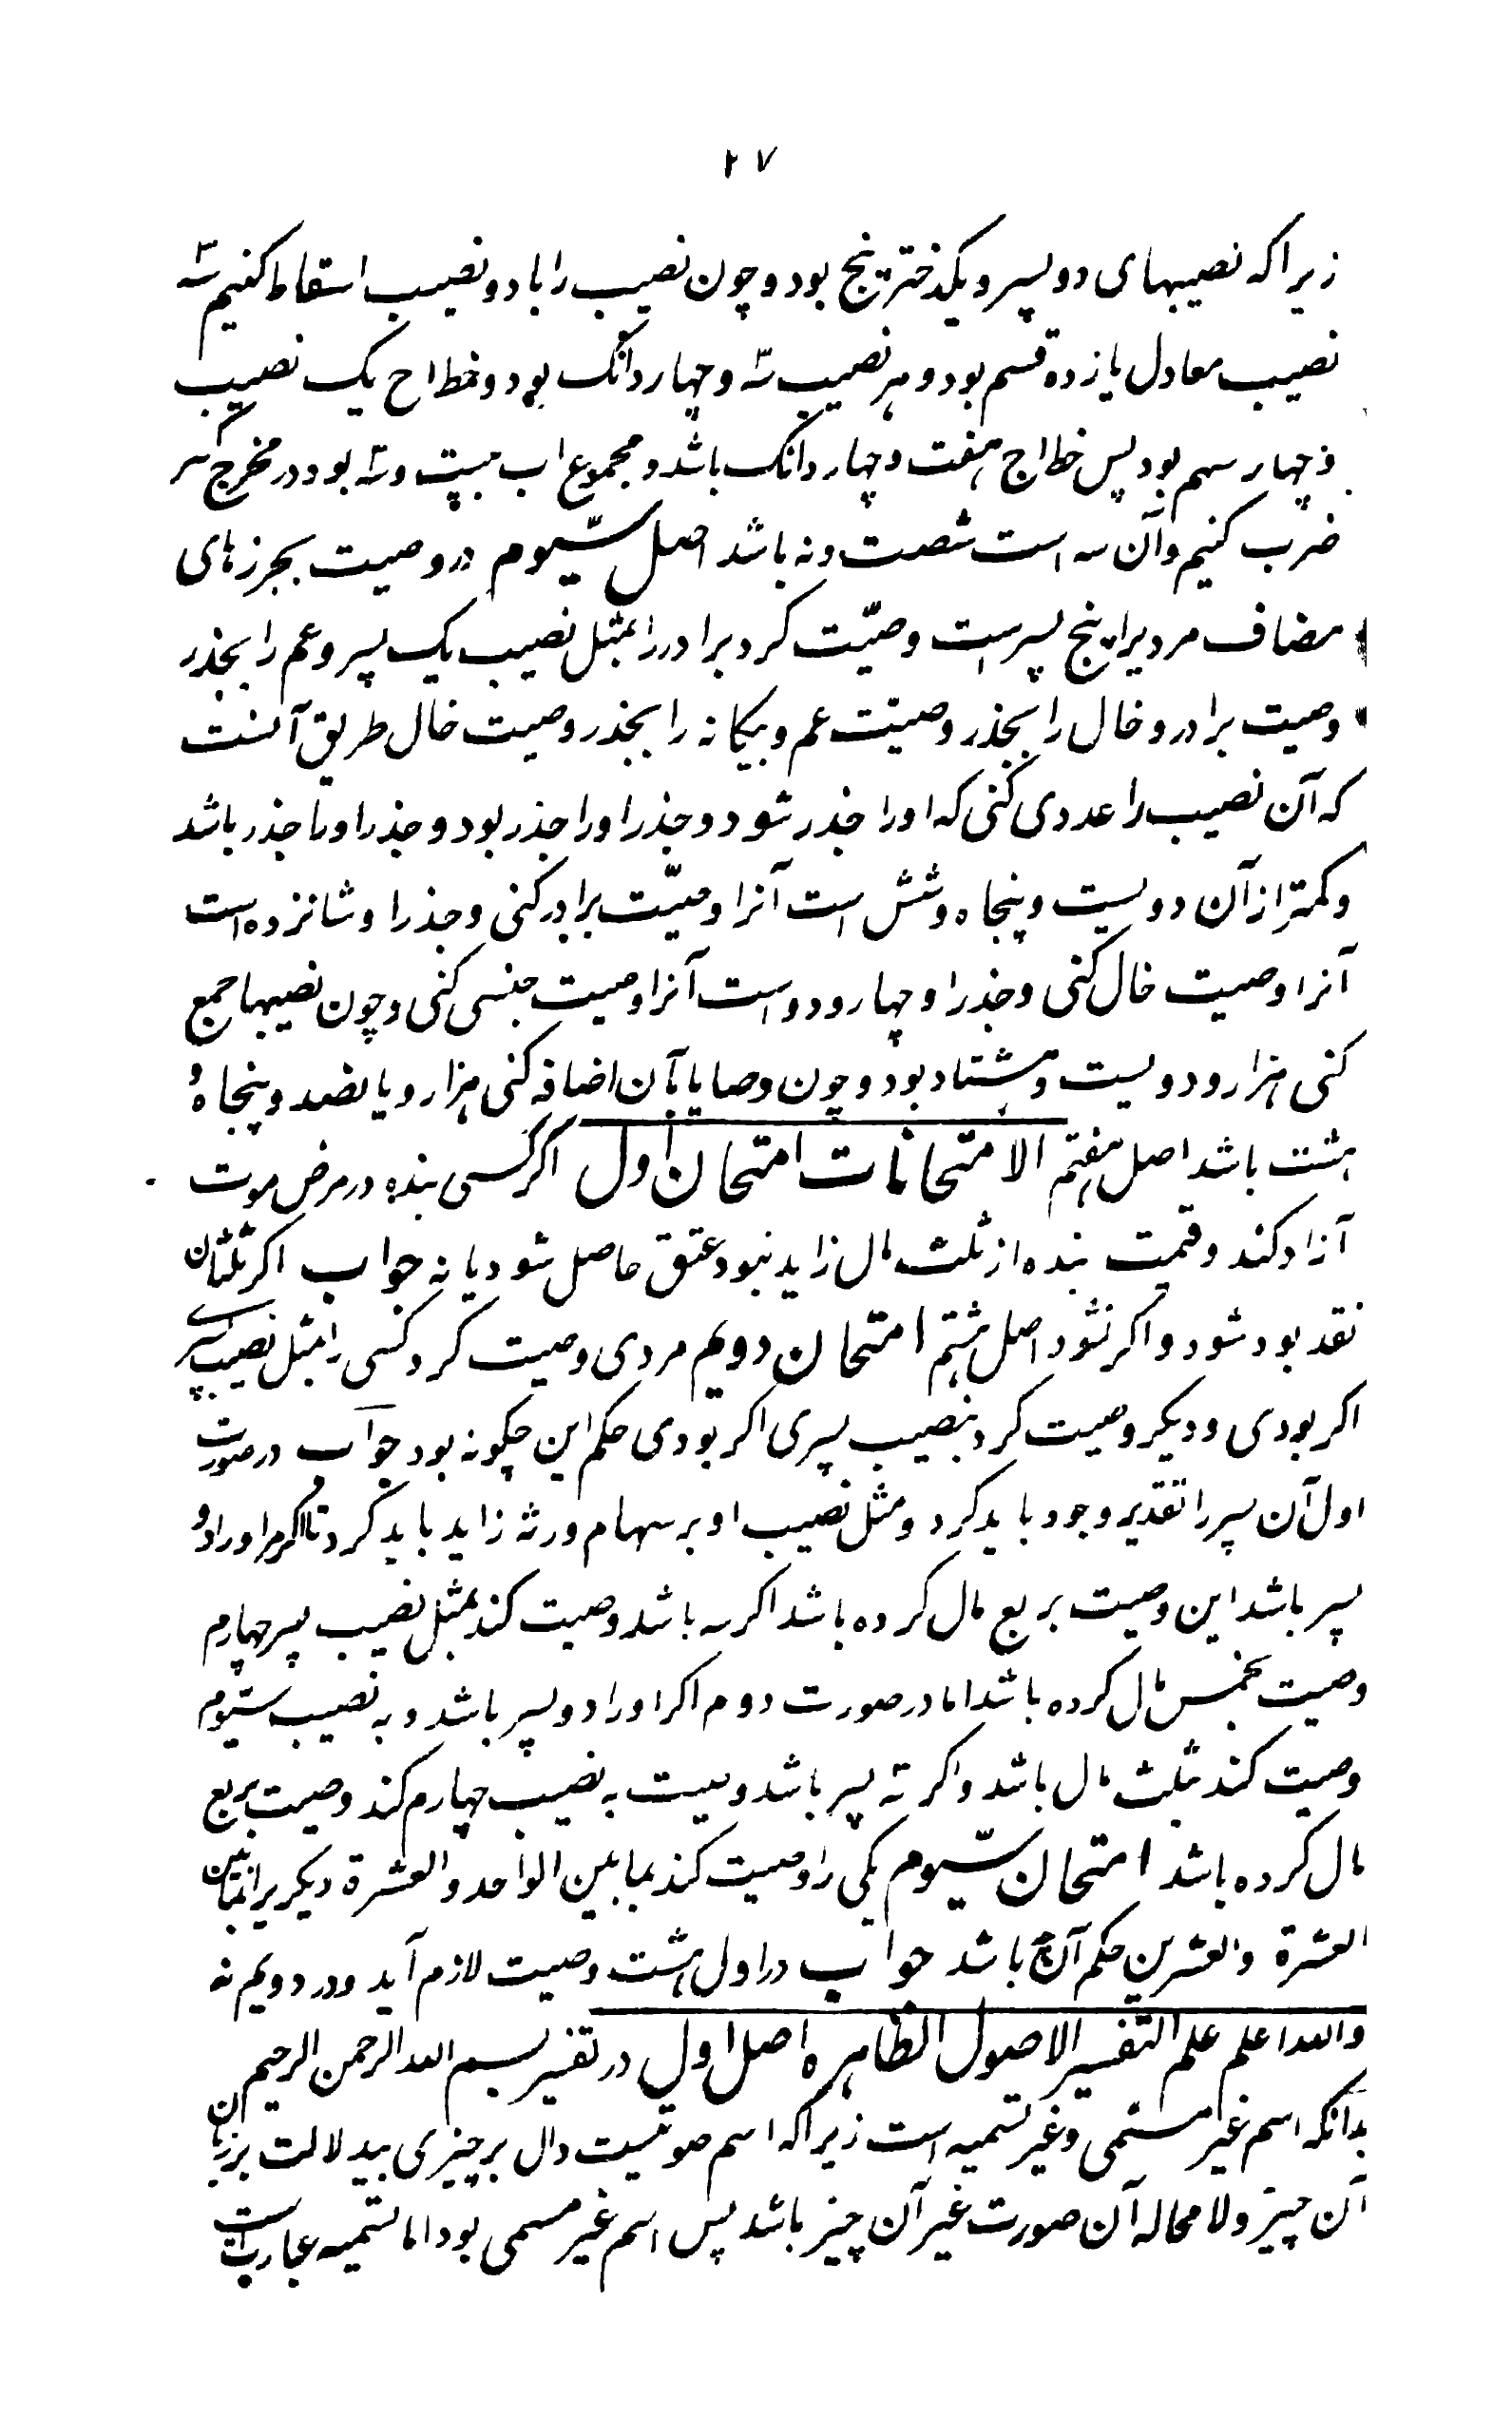 ۲۷
زیرا که نصیبهای دو پسر و یکدختر پنج بود و چون نصیب را با دو نصیب اسقاط کنیم سه
نصیب معادل یازده قسم بود و هر نصیب سه و چهار دانگ بود و خط اح یک نصیب
و چهار سهم بود پس خط اج هفت و چهار دانگ باشد و مجموع اب بیست و سه بود در مخرج سه
ضرب کنیم و آن سه است شصت و نه باشد اصل سیوم در وصیت بجزرهای
مضاف مردیرا پنج پسرست وصیّت کرد برادر را بمثل نصیب یک پسر و عم را بجذر
وصیت برادر و خال را بجذر وصیّت عم و بیکانه را بجذر وصیت خال طریق آنست
که آن نصیب را عددی کنی که او را جذر شود و جذر او را جذر بود و جذر او را جذر باشد
و کمتر از آن دویست و پنجاه و شش است آنرا وصیّت برادر کنی و جذر او شانزده است
آنرا وصیت خال کنی و جذر او چهار و دو است آنرا وصیت جنسی کنی و چون نصیبها جمع
کنی هزار و دویست و هشتاد بود و چون وصایا بآن اضافه کنی هزار و پانصد و پنجاه و
هشت باشد اصل هفتم الامتحانات امتحان اول اکر کسی بنده در مرض موت
آزاد کند و قیمت بنده از ثلث مال زاید نبود عتق حاصل شود یا نه جواب اکر ثلثان
نقد بود شود و اکر نشود اصل هشتم امتحان دویم مردی وصیت کرد کسی را بمثل نصیب پسری
اکر بودی و دیکر وصیت کرد بنصیب پسری اکر بودی حکم این چکونه بود جواب در صورت
اول آن پسر را تقدیر وجود باید کرد و مثل نصیب او بر سهام ورثه زاید باید کرد تا اکر او را دو
پسر باشد این وصیت بربع مال کرده باشد اکر سه باشد وصیت کند بمثل نصیب پسر چهارم
وصیت بخمس مال کرده باشد اما در صورت دوم اکر او را دو پسر باشد و به نصیب سیّوم
وصیت کند بثلث مال باشد و اکر سه پسر باشد وصیت به نصیب چهارم کند وصیت بربع
مال کرده باشد امتحان سیّوم یکی را وصیت کند بما بین الواحد و العشرة دیکریرا بما بین
العشرة و العشرین حکم آن چه باشد جواب در اول هشت وصیت لازم آید و در دویم نه
والله اعلم علم التفسیر الاصول الظاهره اصل اول در تفسیر بسم الله الرحمن الرحیم
بدانکه اسم غیر مسمّی و غیر تسمیه است زیرا که اسم صوتیست دال بر چیزی بید لالت بر زمان
آن چیز و لا محاله آن صورت غیر آن چیز باشد پس اسم غیر مسمی بود اما تسمیه عبارت است